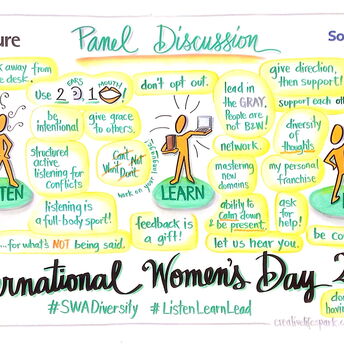 ure
Panel Discussion
So
away from
e desk.
use 2 EARS 1 MOUTH!
be intentional
give grace
to others.
structured
active
listening for
conflicts
Can't Not
Won't Don't
work on your
listening is
a full-body sport!
...for what's NOT being said.
TEN
don't opt out.
LEARN
feedback is
a gift!
lead in
the GRAY.
People are
not B&W!
network.
mastering
new
domains
ability to
calm down
& be present.
let us hear you.
give direction,
then support
support each othe
diversity
of
thoughts
my personal
franchise
ask
for
help!
be co
ernational Women's Day 2
#SWADiversity #ListenLearnLead
do
havin
creativelifespark.c